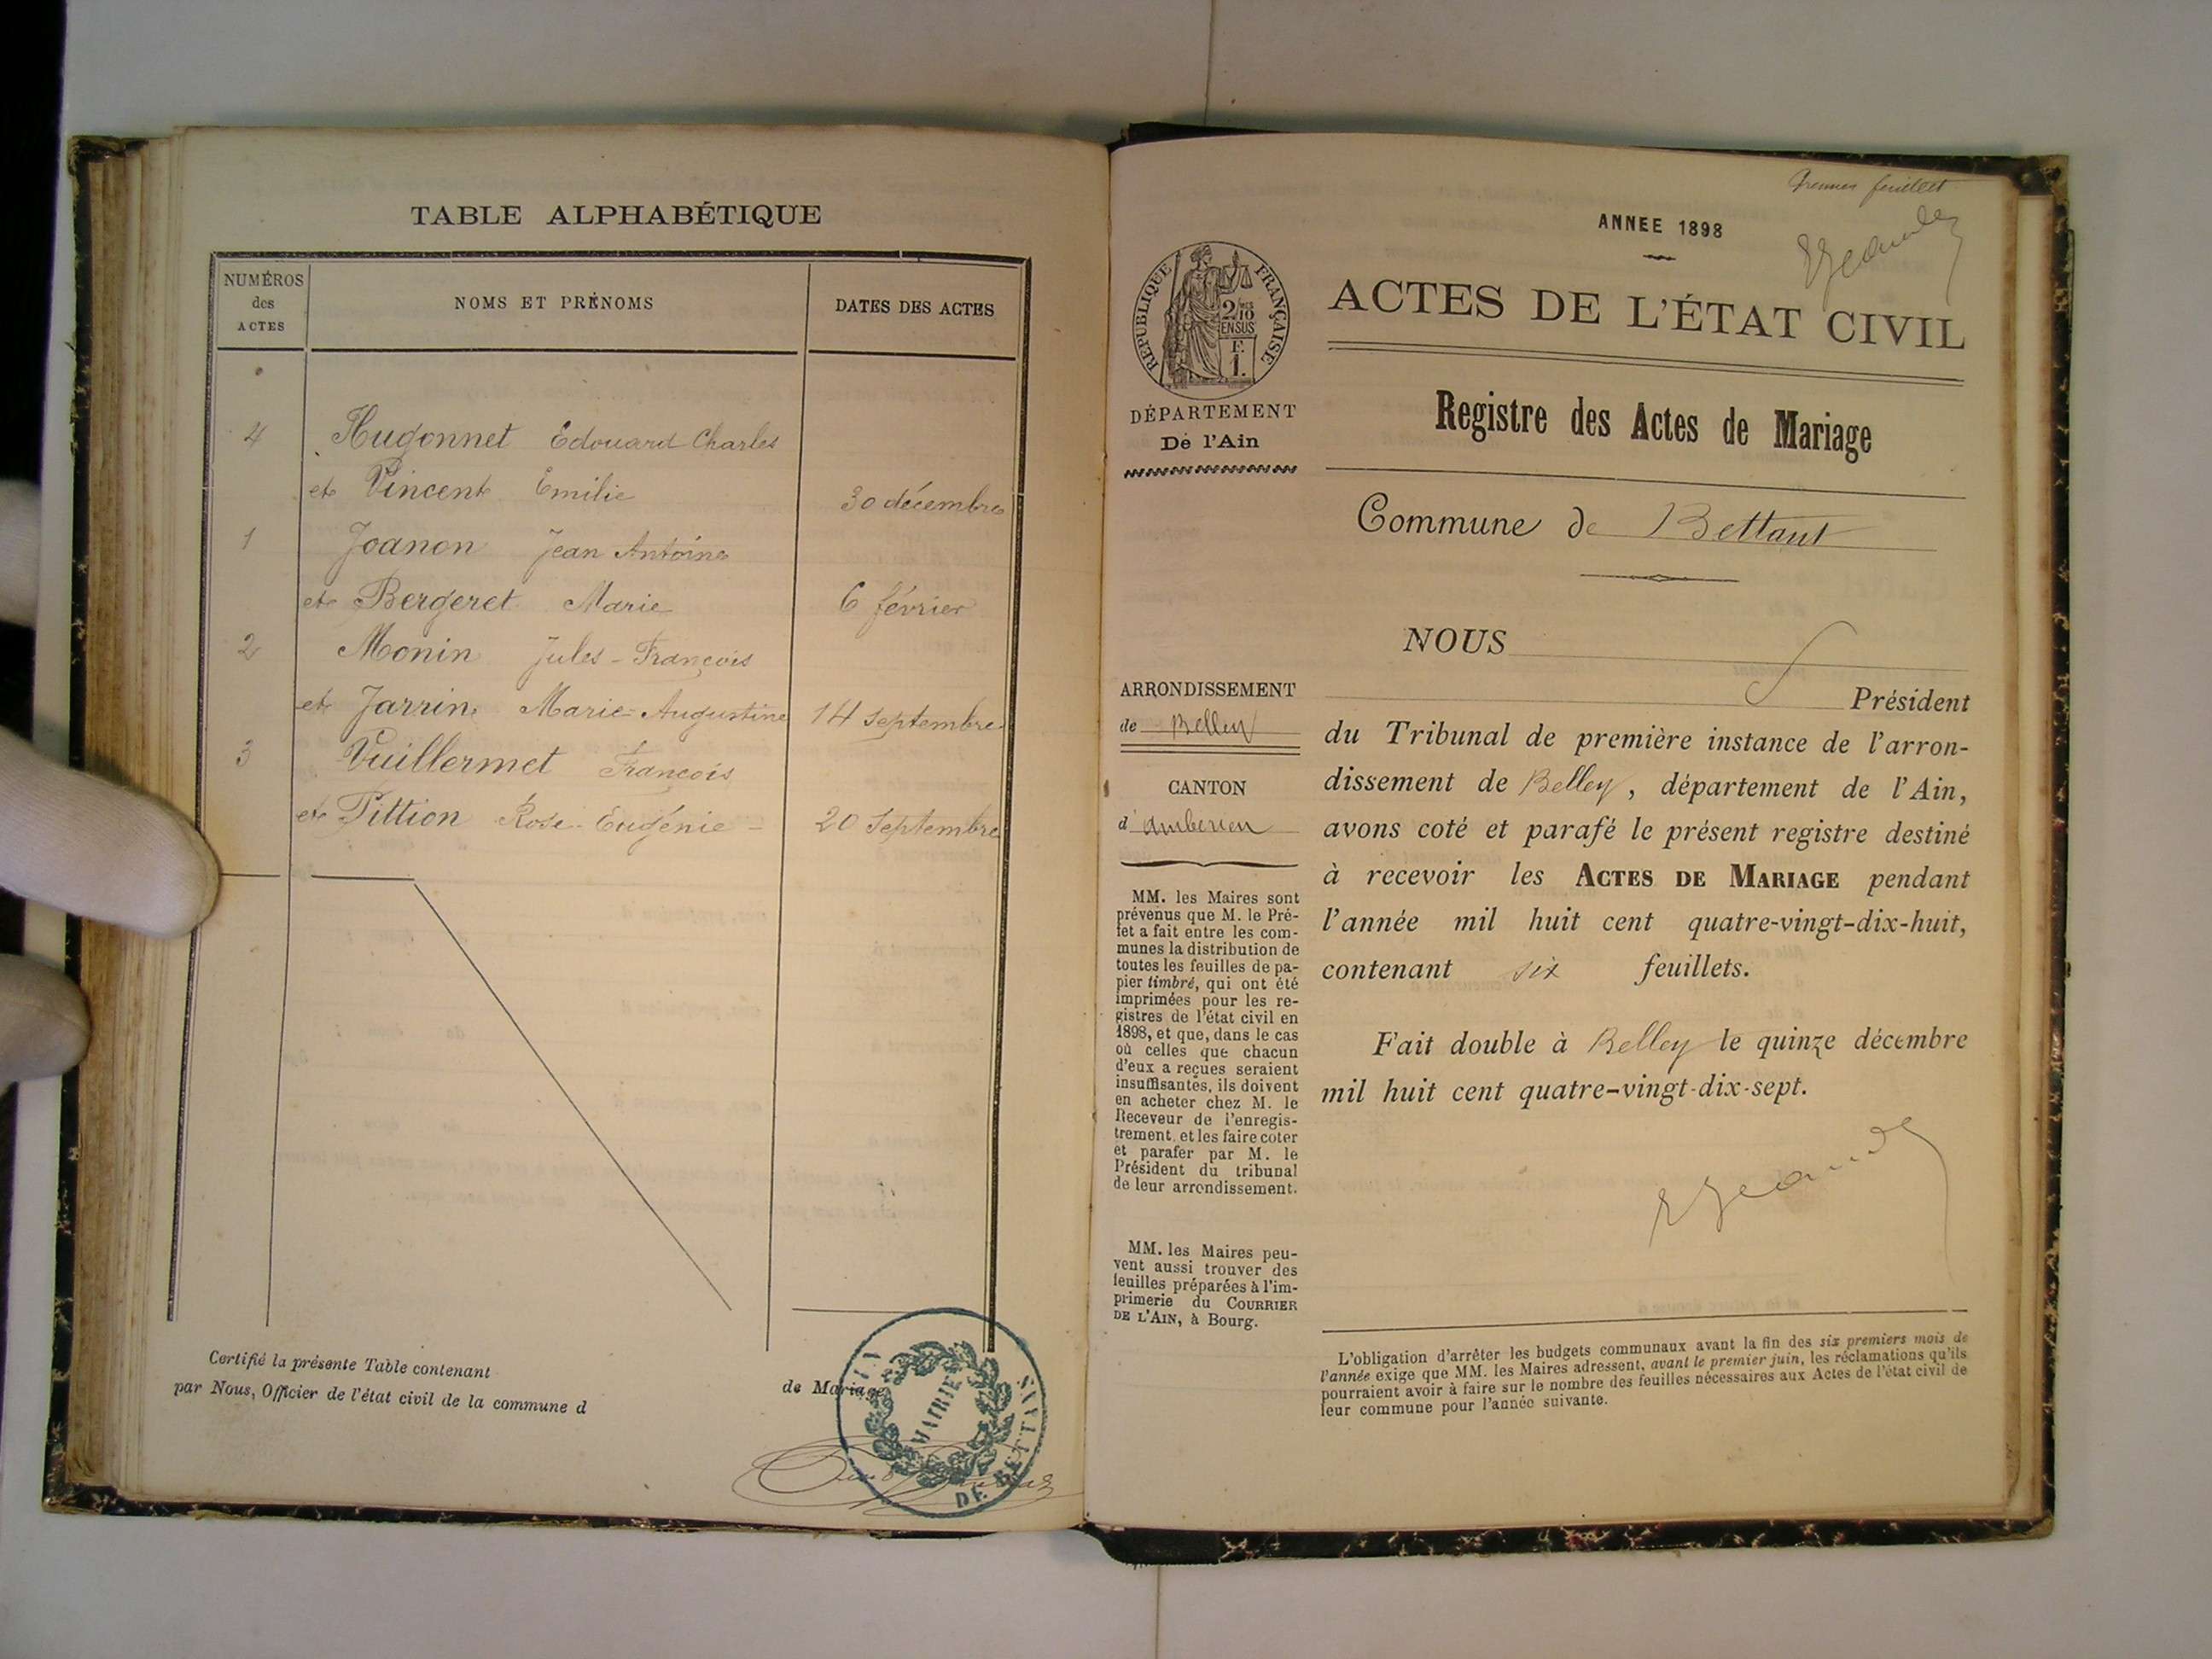 TABLE ALPHABÉTIQUE
NUMÉROS
des
ACTES
NOMS ET PRÉNOMS
DATES DES ACTES
4 Hugonnet Edouard Charles
et Vincent Emilie 30 décembre
1 Joanon Jean Antoine
et Bergeret Marie 6 février
2 Monin Jules-François
et Jarrin Marie-Augustine 14 Septembre
3 Vuillermet François
et Pittion Rose-Eugénie - 20 Septembre
Certifié la présente Table contenant de Mariage
par Nous, Officier de l'état civil de la commune d
MAIRIE
DE BETTANT
AIN
feuillet
ANNEE 1898
ACTES DE L'ÉTAT CIVIL
Registre des Actes de Mariage
Commune de Bettant
RÉPUBLIQUE FRANÇAISE
2/10
EN SUS
F.
1.
DÉPARTEMENT
De l'Ain
ARRONDISSEMENT
de Belley
CANTON
d'Ambérieu
MM. les Maires sont
prévenus que M. le Pré-
fet a fait entre les com-
munes la distribution de
toutes les feuilles de pa-
pier timbré, qui ont été
imprimées pour les re-
gistres de l'état civil en
1898, et que, dans le cas
où celles que chacun
d'eux a reçues seraient
insuffisantes, ils doivent
en acheter chez M. le
Receveur de l'enregis-
trement, et les faire coter
et parafer par M. le
Président du tribunal
de leur arrondissement.
MM. les Maires peu-
vent aussi trouver des
feuilles préparées à l'im-
primerie du COURRIER
DE L'AIN, à Bourg.
NOUS
Président
du Tribunal de première instance de l'arron-
dissement de Belley, département de l'Ain,
avons coté et parafé le présent registre destiné
à recevoir les ACTES DE MARIAGE pendant
l'année mil huit cent quatre-vingt-dix-huit,
contenant six feuillets.
Fait double à Belley le quinze décembre
mil huit cent quatre-vingt-dix-sept.
L'obligation d'arrêter les budgets communaux avant la fin des six premiers mois de
l'année exige que MM. les Maires adressent, avant le premier juin, les réclamations qu'ils
pourraient avoir à faire sur le nombre des feuilles nécessaires aux Actes de l'état civil de
leur commune pour l'année suivante.